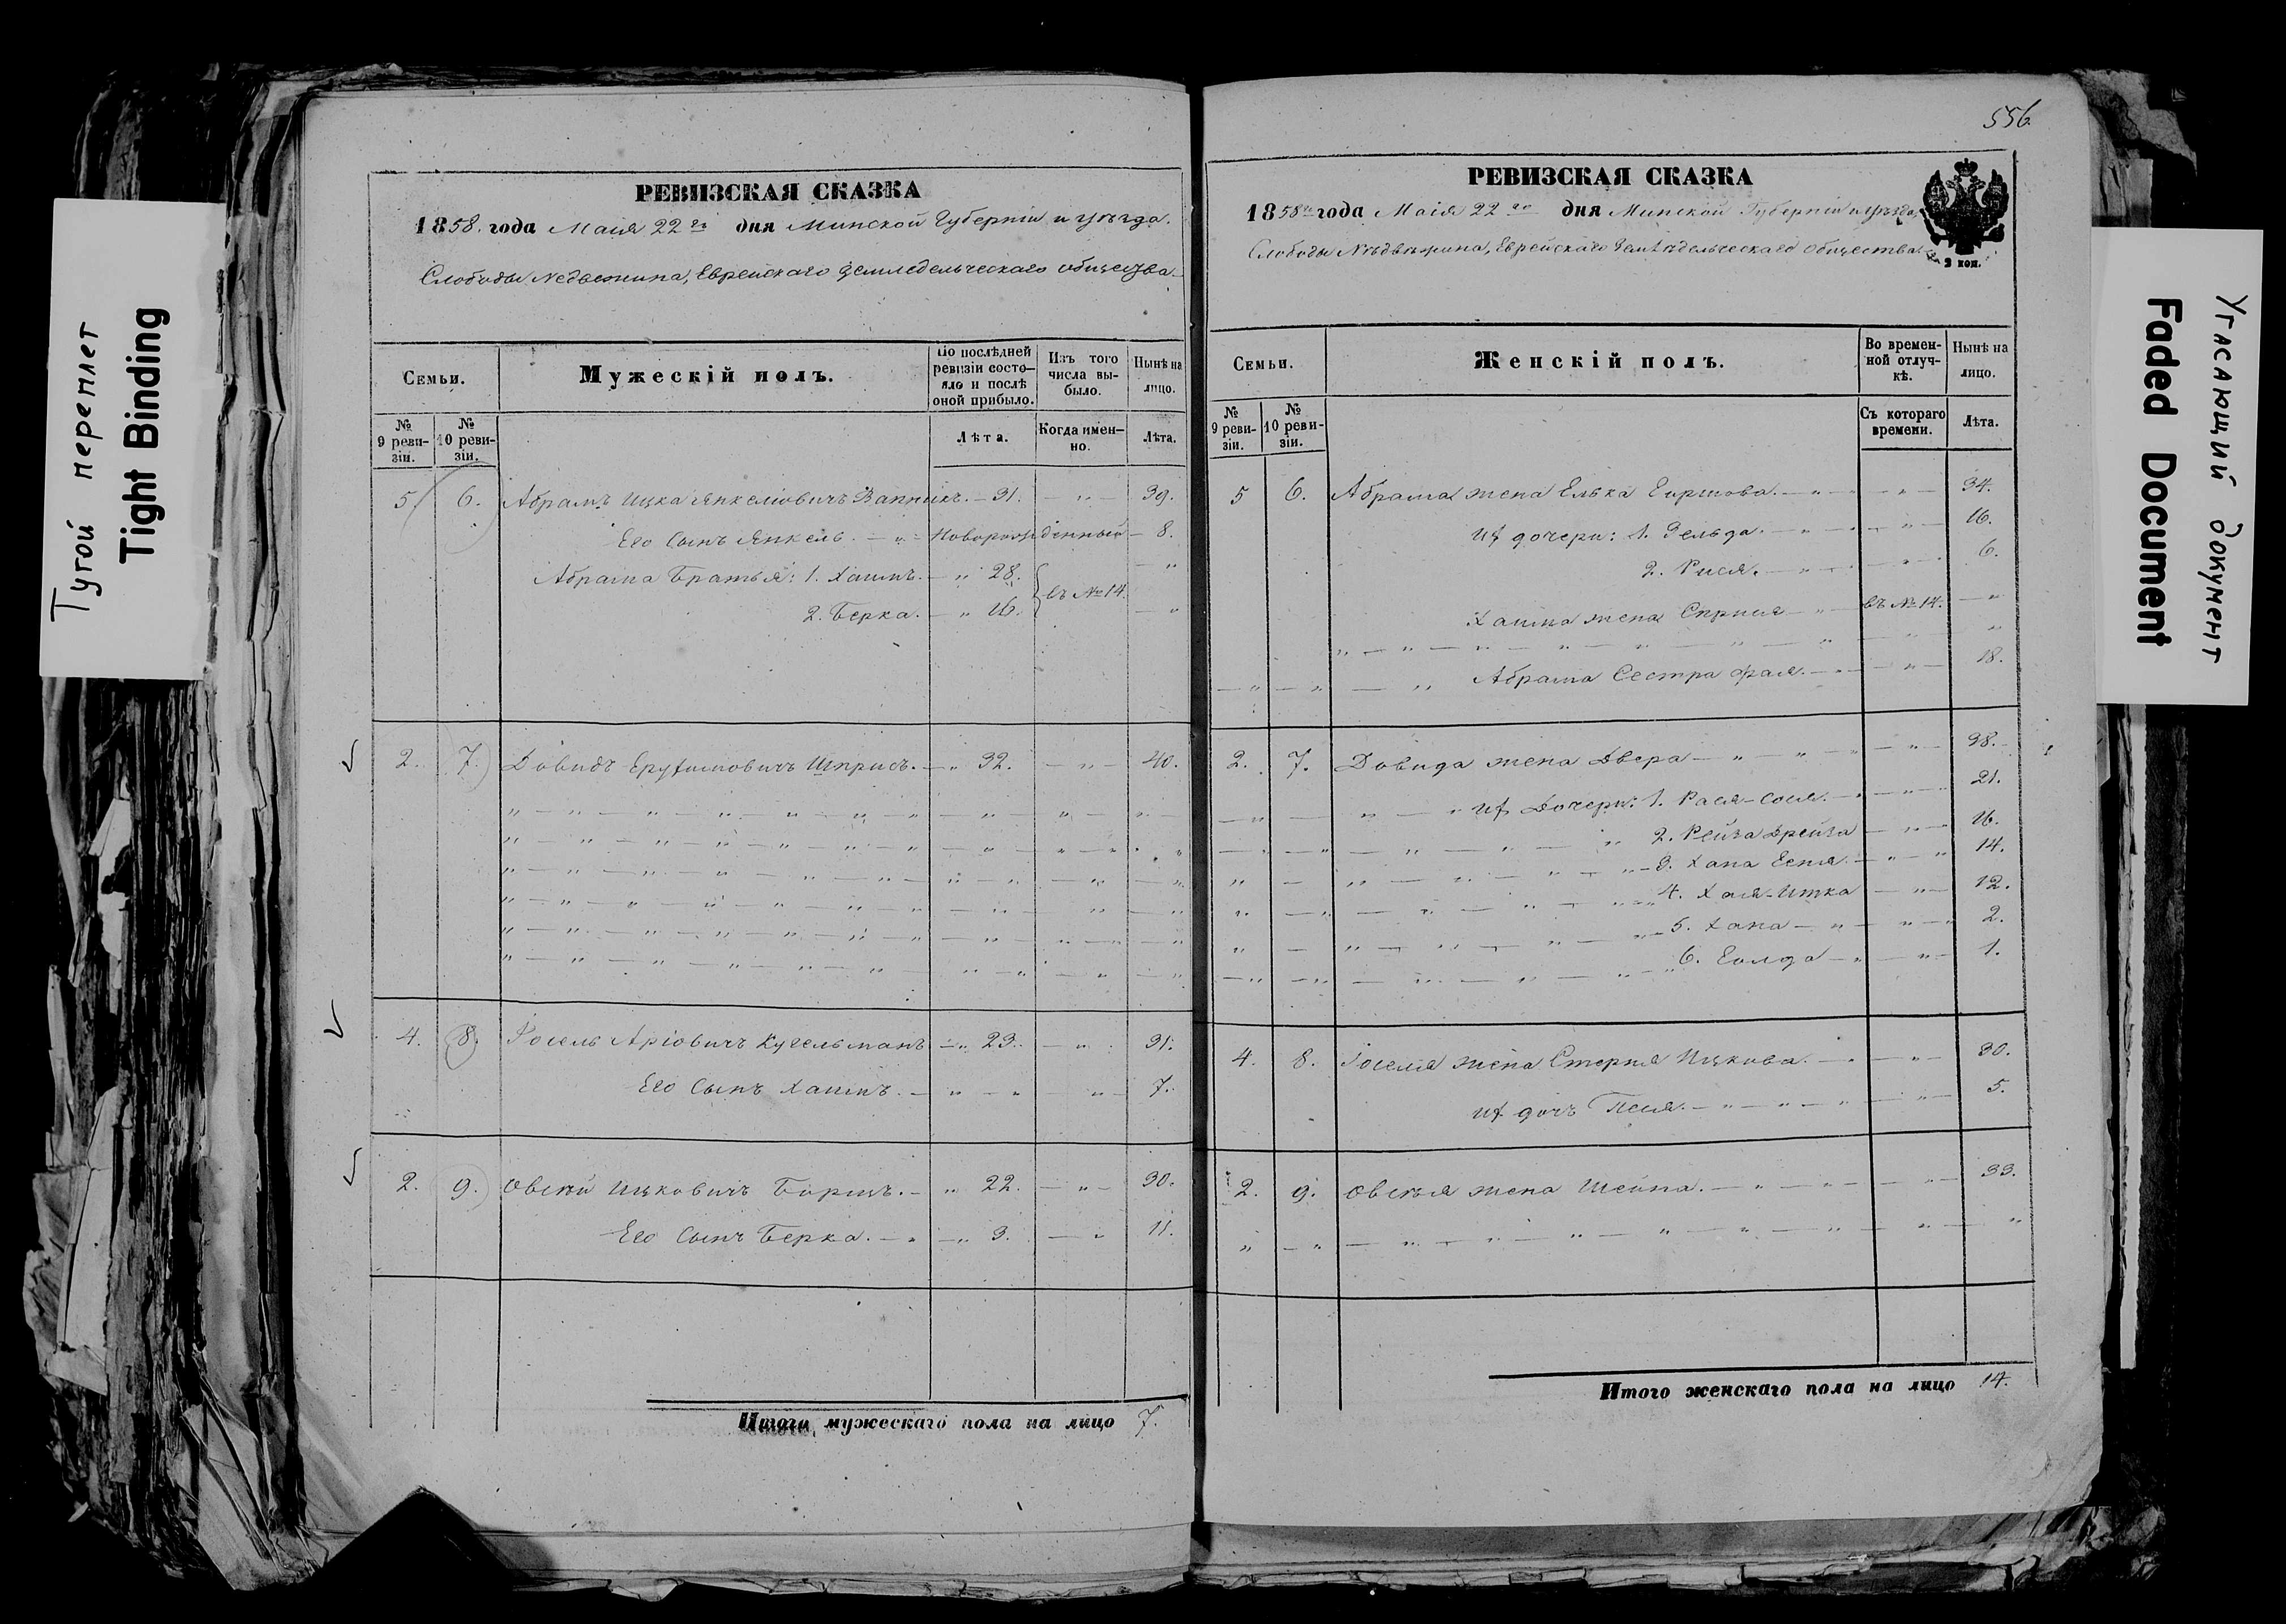 Тугой переплет
Tight Binding
РЕВИЗСКАЯ СКАЗКА
1858. года Маія 22го дня Минской Губерніи и уѣзда.
Слободы Недвежина, Еврейскаго Земледельческаго общества.
Семьи.
Мужескій полъ.
По послѣдней ревизіи состояло и послѣ оной прибыло.
Изъ того числа выбыло.
Нынѣ на лицо.
№ 9 ревизіи.
№ 10 ревизіи.
Лѣта.
Когда именно.
Лѣта.
5 6. Абрамъ Ицка Янкеліовичъ Запникъ. — 31. — „ — 39.
Его Сынъ Янкель. — „ — Новорожденный — 8.
Абрама Братья: 1. Хаимъ. — „ 28. въ №14. „
2. Берка. — „ 16. — „
2. 7. Довидъ Ерухимовичъ Шприсъ. — „ 32. — „ — 40.
4. 8. Іосель Аріовичъ Кугельманъ — „ 23. — „ 31.
Его Сынъ Хаимъ. — „ — „ „ 7.
2. 9. Овсѣй Ицковичъ Борицъ. — „ 22. — „ — 30.
Его Сынъ Берка. — „ — „ 3. — „ 11.
Итого мужескаго пола на лицо 7.
556.
РЕВИЗСКАЯ СКАЗКА
1858го года Маія 22го дня Минской Губерніи и уѣзда,
Слободы Нѣдвѣжина, Еврейскаго Земледѣльческаго Общества.
2 коп.
Семьи.
Женскій полъ.
Во временной отлучкѣ.
Нынѣ на лицо.
№ 9 ревизіи.
№ 10 ревизіи.
Съ котораго времени.
Лѣта.
5 6. Абрама жена Елька Гиршова. — „ — „ — 34.
Их дочери: 1. Зельда. — „ — „ — 16.
2. Рися. — „ — „ — 6.
Хаима жена Сприня — „ — въ №14. — „
Абрама Сестра Фаля. — „ — 18.
2. 7. Довида жена Двера — „ — „ — „ — 38.
их Дочери: 1. Рася-Сося. — „ — 21.
2. Рейза Дрейза — „ — 16.
3. Хана Естя. — „ — „ 14.
4. Хая-Итка — „ — 12.
5. Хана — „ — „ — 2.
6. Голда — „ — „ — 1.
4. 8. Іоселя жена Стерня Ицкова. — „ — „ 30.
их дочь Песя. — „ — „ — „ — „ 5.
2. 9. Овсѣя жена Шейна. — „ — „ — „ 33.
Итого женскаго пола на лицо 14.
Угасающий документ
Faded Document